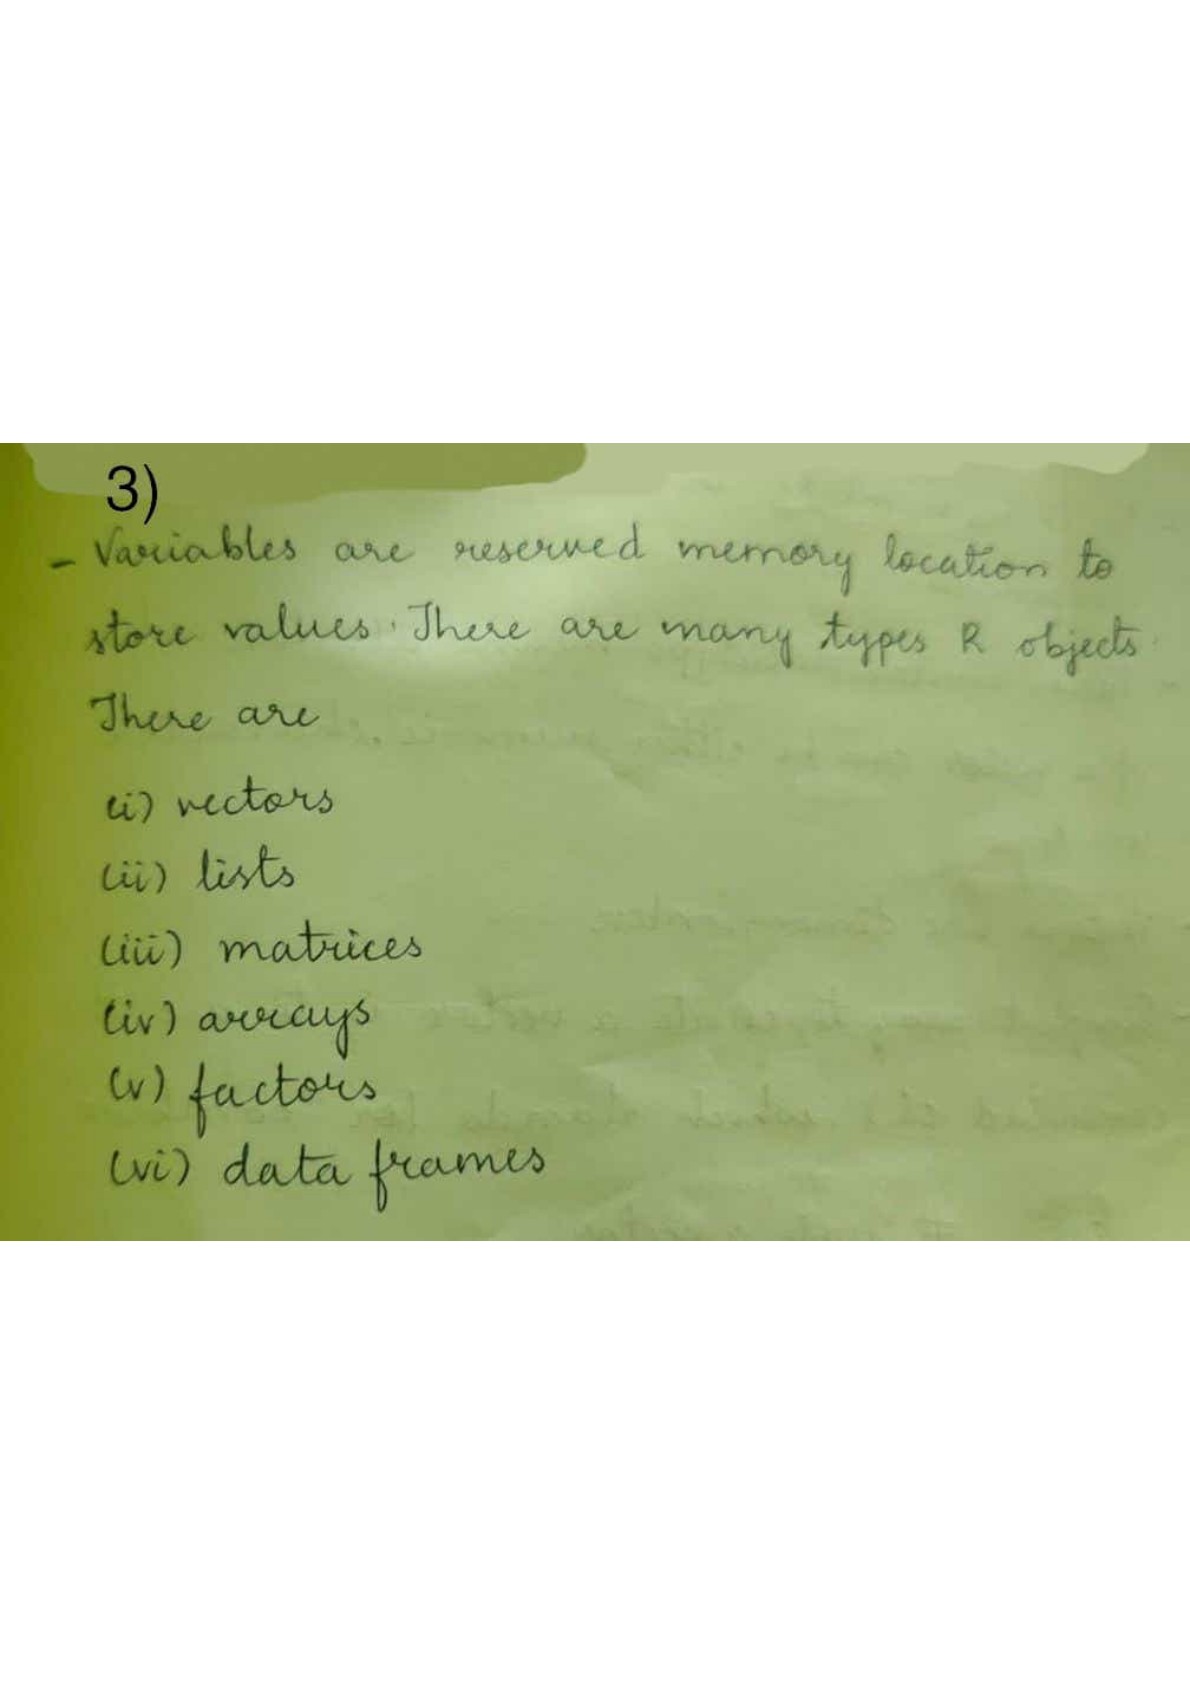 3)
- Variables are reserved memory location to
store values. There are many types R objects.
There are
(i) vectors
(ii) lists
(iii) matrices
(iv) arrays
(v) factors
(vi) data frames